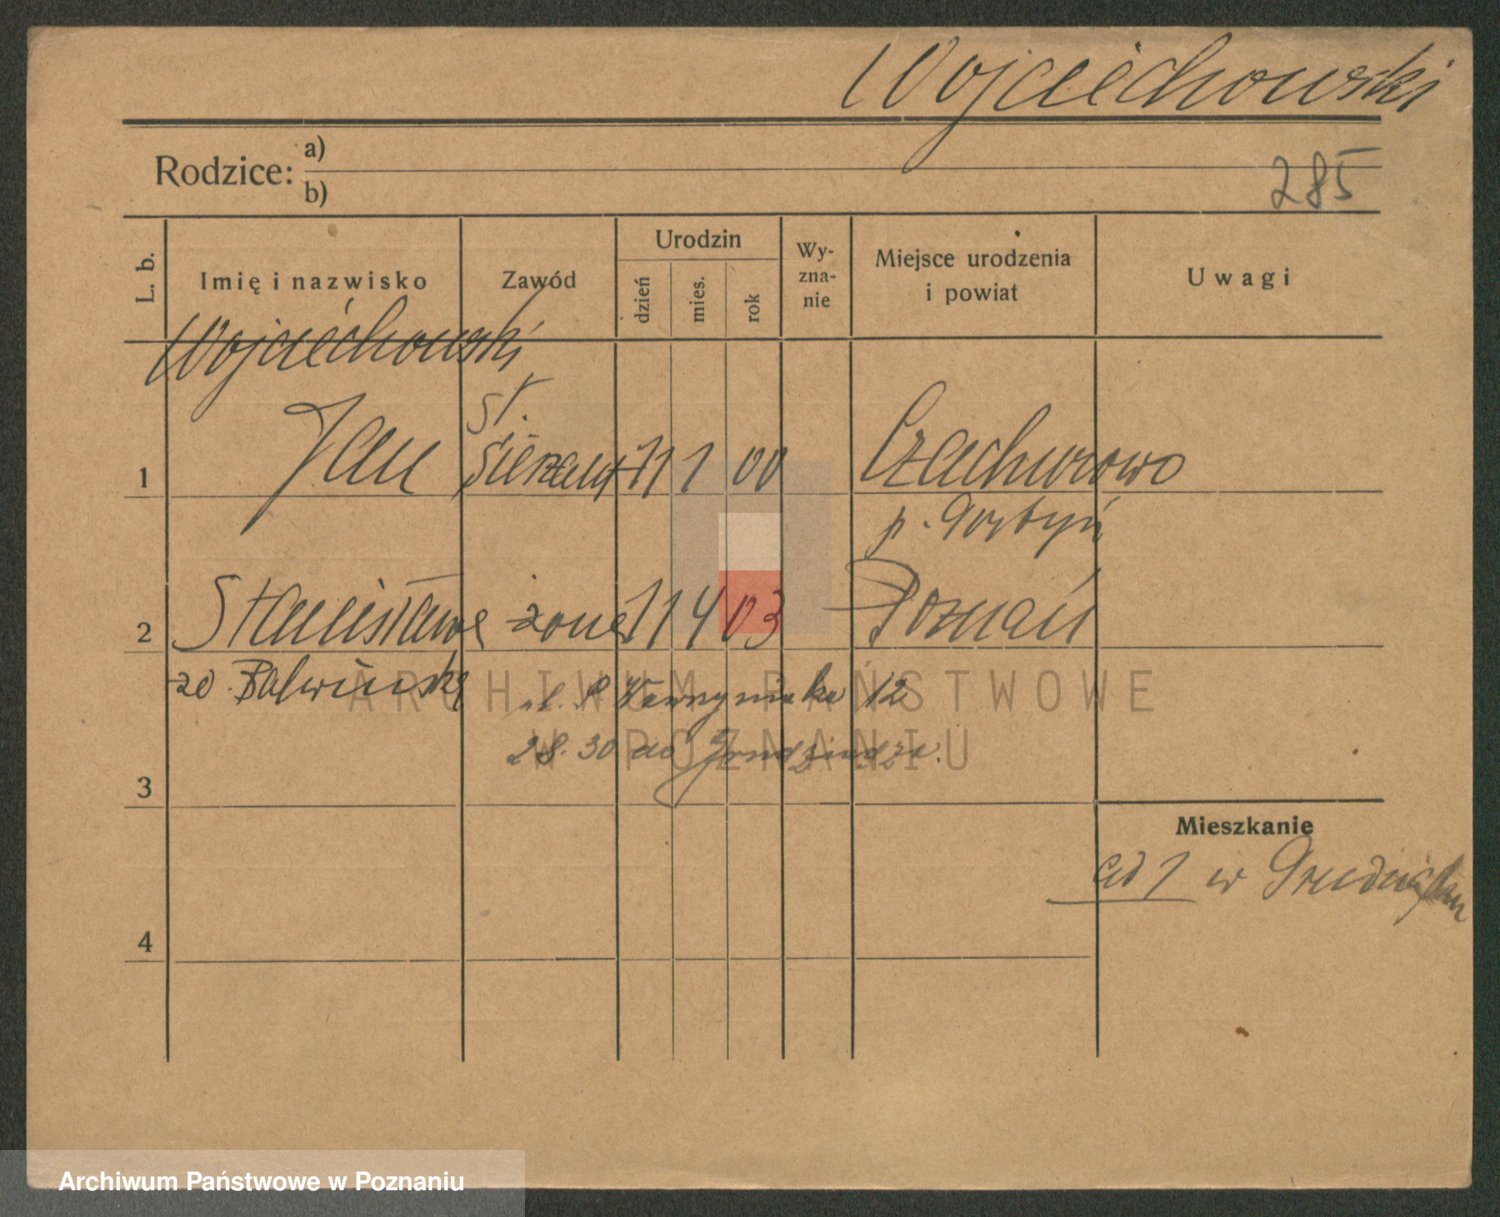 Wojciechowski
Rodzice: a)
b)
285
L. b.
Imię i nazwisko
Zawód
Urodzin
dzień
mies.
rok
Wy-
zna-
nie
Miejsce urodzenia
i powiat
Uwagi
Wojciechowski
1 Jan st. sierżant 11 1 00 Czachorowo
p. Gostyń
2 Stanisława żona 11 4 03 Poznań
zd. Balwińska
12
28. 30 do Grudziądza.
3
Mieszkanie
ad 1 w Grudziądzu
4
ARCHIWUM PAŃSTWOWE
W POZNANIU
Archiwum Państwowe w Poznaniu